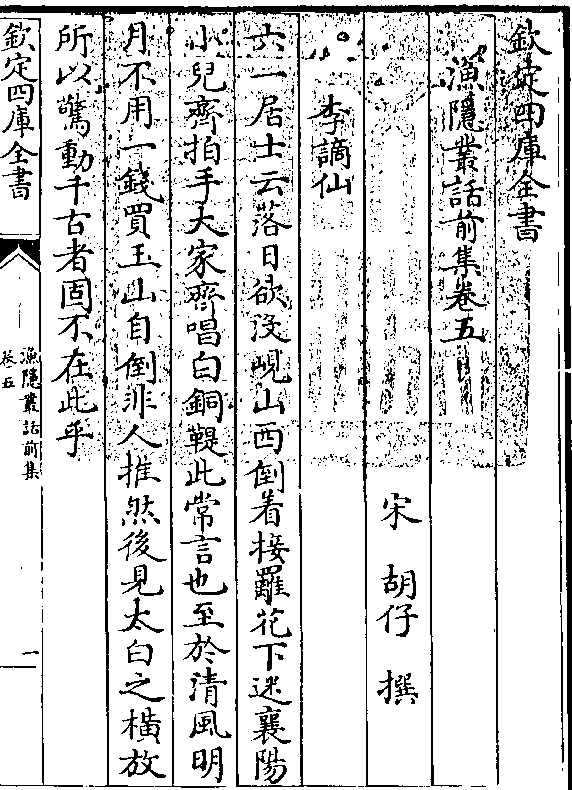 欽定四庫全書
漁隱叢話前集卷五
宋 胡仔 撰
李謫仙
六一居士云落日欲沒峴山西倒着接䍦花下迷襄陽
小兒齊拍手大家齊唱白銅鞮此常言也至於清風明
月不用一錢買玉山自倒非人推然後見太白之橫放
所以驚動千古者固不在此乎
欽定四庫全書
漁隱叢話前集
卷五
一